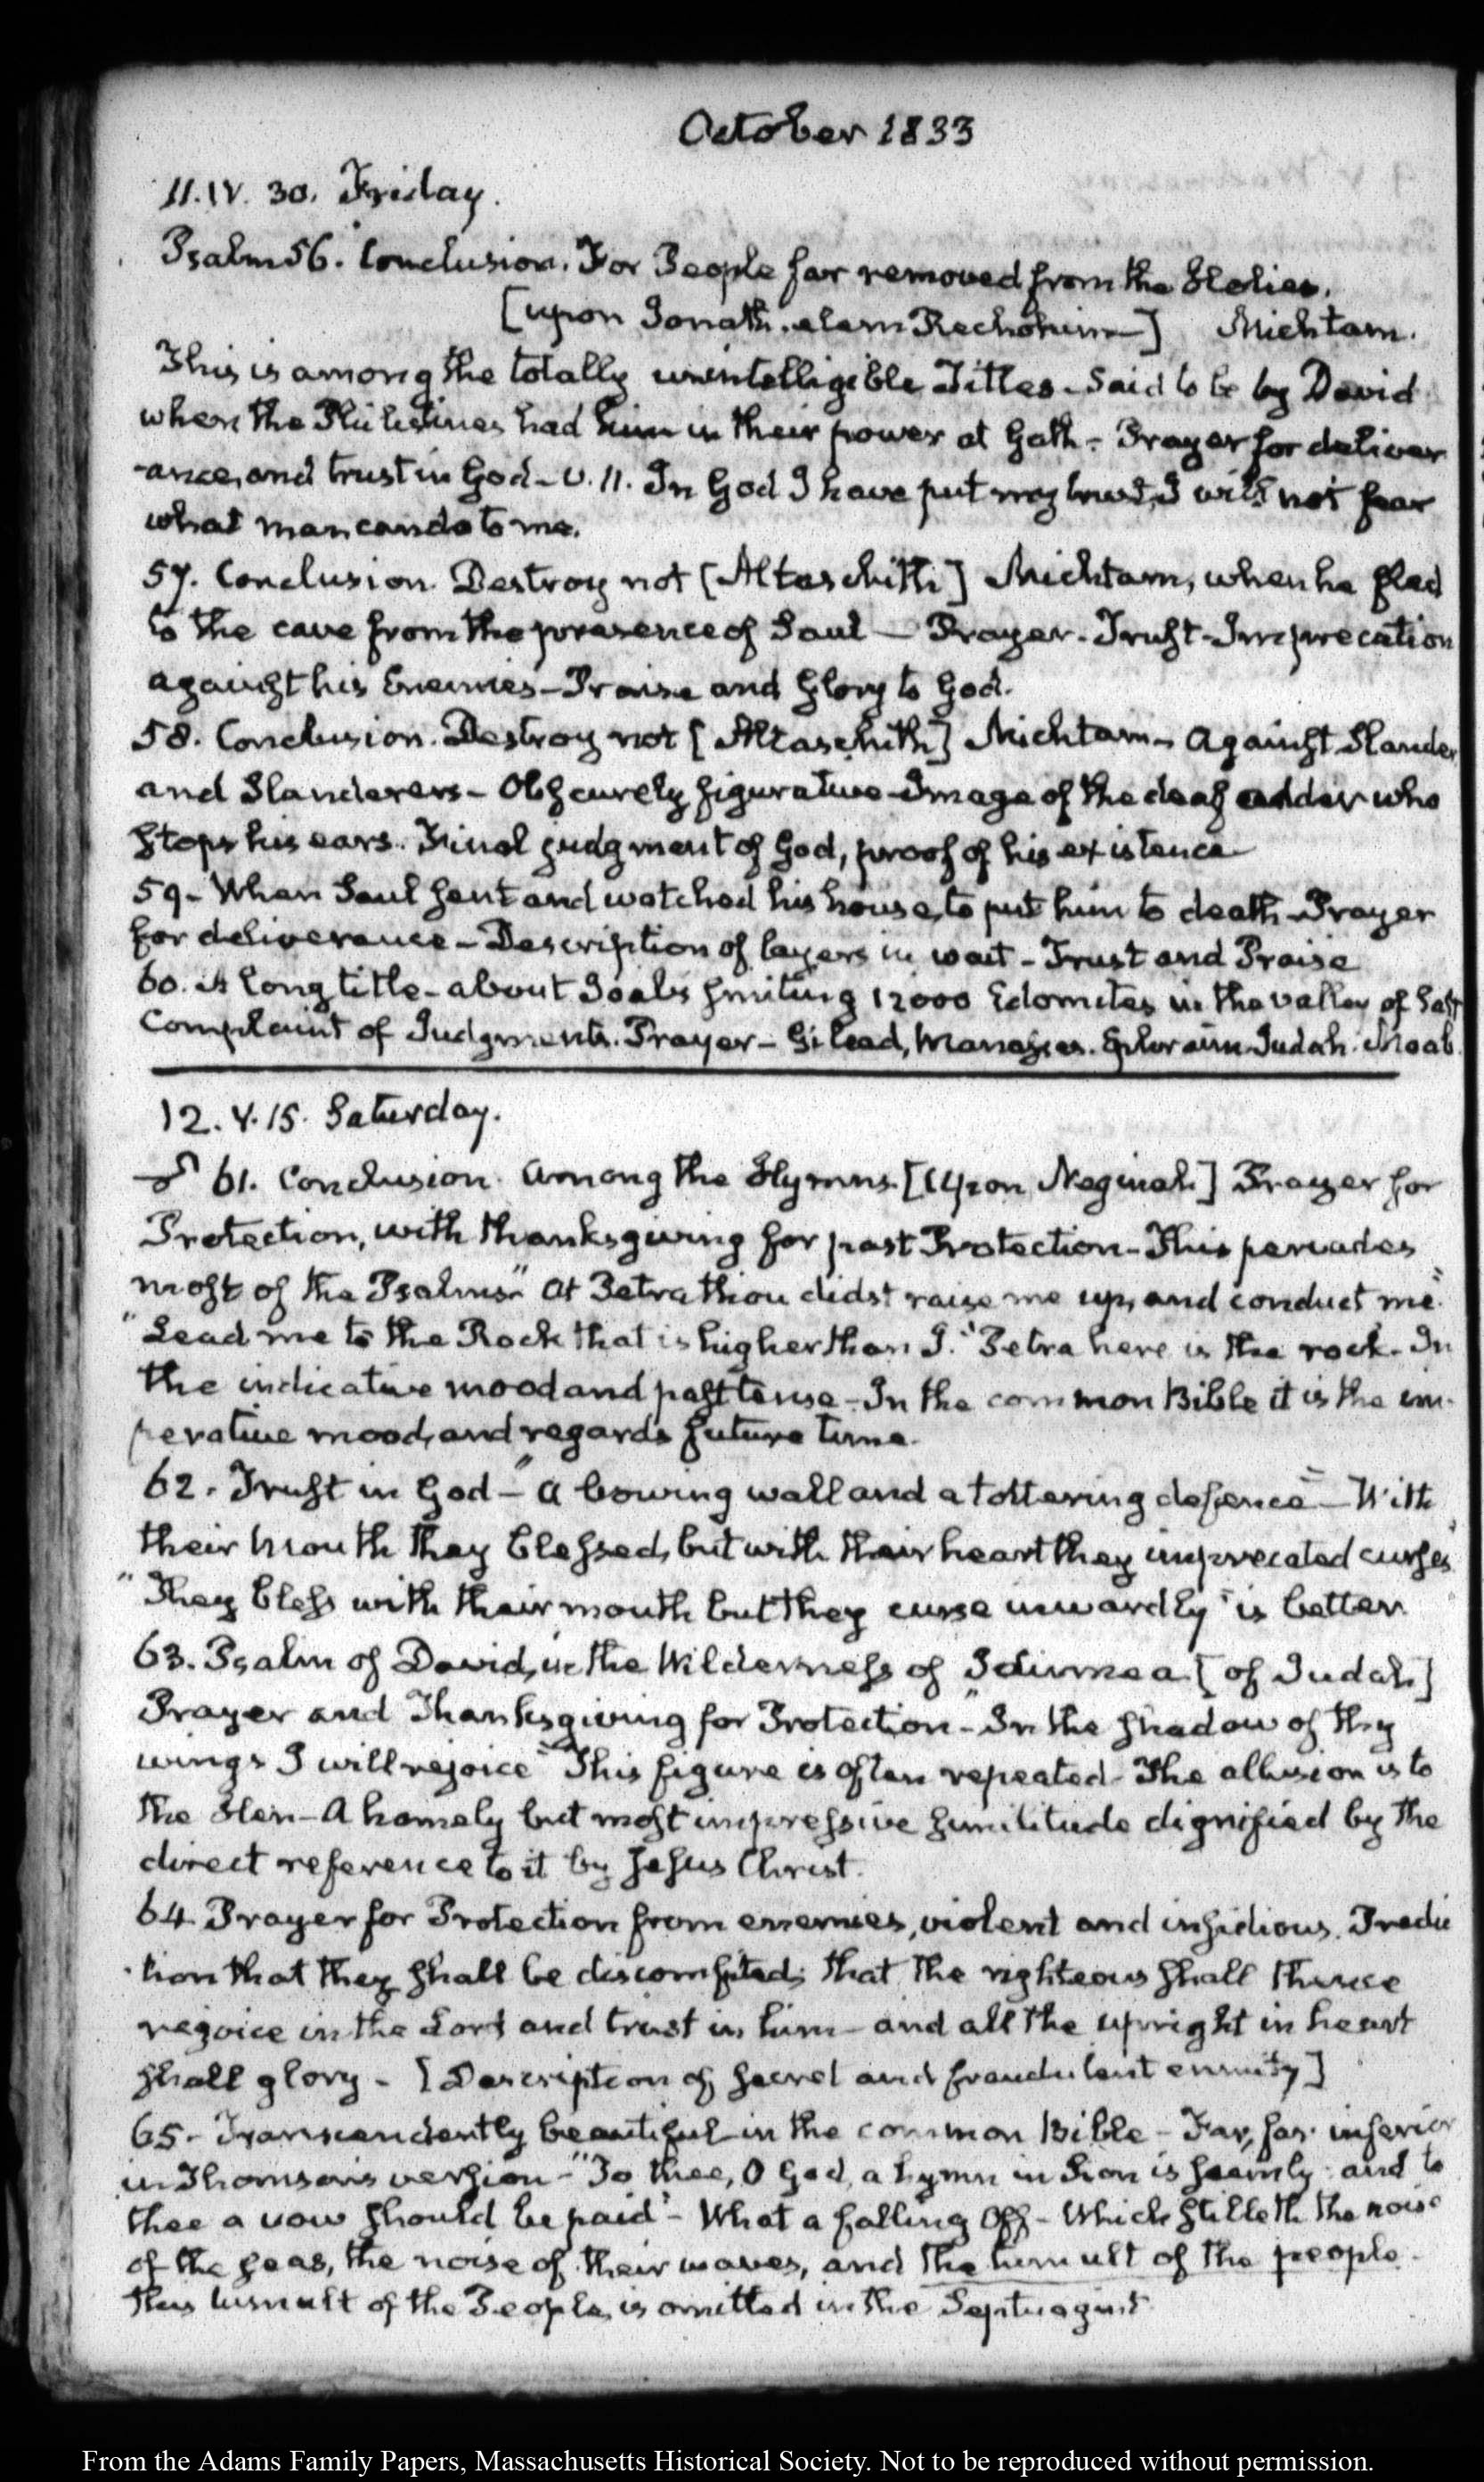 October 1833
11. IV. 30. Friday.
Psalm 56. Conclusion. For People far removed from the Holies.
[upon Jonath. elem Rechokim—] Michtam.
This is among the totally unintelligible Titles - Said to be by David
when the Philistines had him in their power at Gath - Prayer for deliver
-ance, and trust in God - v. 11. In God I have put my trust, I will not fear
what man can do to me.
57. Conclusion. Destroy not [Altaschith] Michtam, when he fled
to the cave from the presence of Saul — Prayer - Trust - Imprecation
against his Enemies - Praise and Glory to God.
58. Conclusion. Destroy not [Altaschith] Michtam - Against Slander
and Slanderers - Obscurely figurative - Image of the deaf adder who
stops his ears. Final judgment of God, proof of his existence
59 - When Saul sent and watched his house, to put him to death - Prayer
for deliverance - Description of layers in wait - Trust and Praise
60. A long title - about Joab's smiting 12000 Edomites in the valley of Salt
Complaint of Judgments. Prayer - Gilead, Manasses. Ephraim Judah. Moab.
12. V. 15. Saturday.
61. Conclusion. Among the Hymns. [Upon Neginah] Prayer for
Protection, with thanksgiving for past Protection - This pervades
most of the Psalms - "At Petra thou didst raise me up, and conduct me."
"Lead me to the Rock that is higher than I." Petra here is the rock - In
the indicative mood and past tense - In the common Bible it is the im-
perative mood, and regards future time.
62. Trust in God - "a bowing wall and a tottering defence" - With
their mouth they blessed, but with their heart they imprecated curses"
"They bless with their mouth but they curse inwardly" is better
63. Psalm of David, in the Wilderness of Idumea [of Judah]
Prayer and Thanksgiving for Protection - "In the shadow of thy
wings I will rejoice" This figure is often repeated - The allusion is to
the Hen - A homely but most impressive similitude dignified by the
direct reference to it by Jesus Christ.
64 Prayer for Protection from enemies, violent and insidious. Predic
-tion that they shall be discomfited; that the righteous shall thence
rejoice in the Lord and trust in him - and all the upright in heart
shall glory - [Description of secret and fraudulent enmity]
65 - Transcendently beautiful in the common Bible - Far, far inferior
in Thomson's version - "To thee, O God, a hymn in Sion is seemly and to
thee a vow should be paid" - What a falling off - Which stilleth the noise
of the seas, the noise of their waves, and the tumult of the people -
this tumult of the People, is omitted in the Septuagint
From the Adams Family Papers, Massachusetts Historical Society. Not to be reproduced without permission.